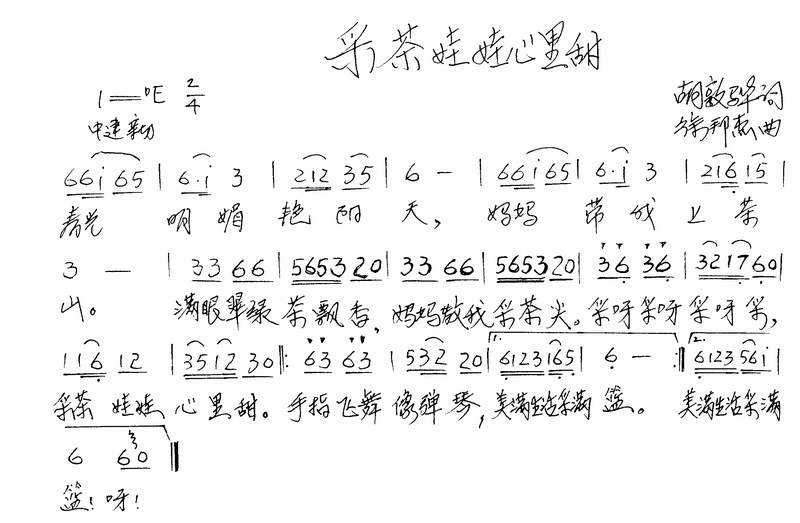 采茶娃娃心里甜
1=♭E 2/4
胡敦骅词
中速 亲切
徐邦杰曲
66i 65 | 6·i 3 | 212 35 | 6 - | 66i65 | 6·i 3 | 216 15 |
春光 明媚 艳阳天，妈妈 带我上茶
3 - | 33 66 | 5653 20 | 33 66 | 5653 20 | 36 36 | 3217 60 |
山。 满眼翠绿茶飘香，妈妈教我采茶尖。采呀采呀采呀采，
116 12 | 3512 30 |: 63 63 | 532 20 | 1. 6123165 | 6 - :| 2. 612356i |
采茶娃娃心里甜。手指飞舞像弹琴，美满生活采满篮。 美满生活采满
6 60 ||
篮！呀！